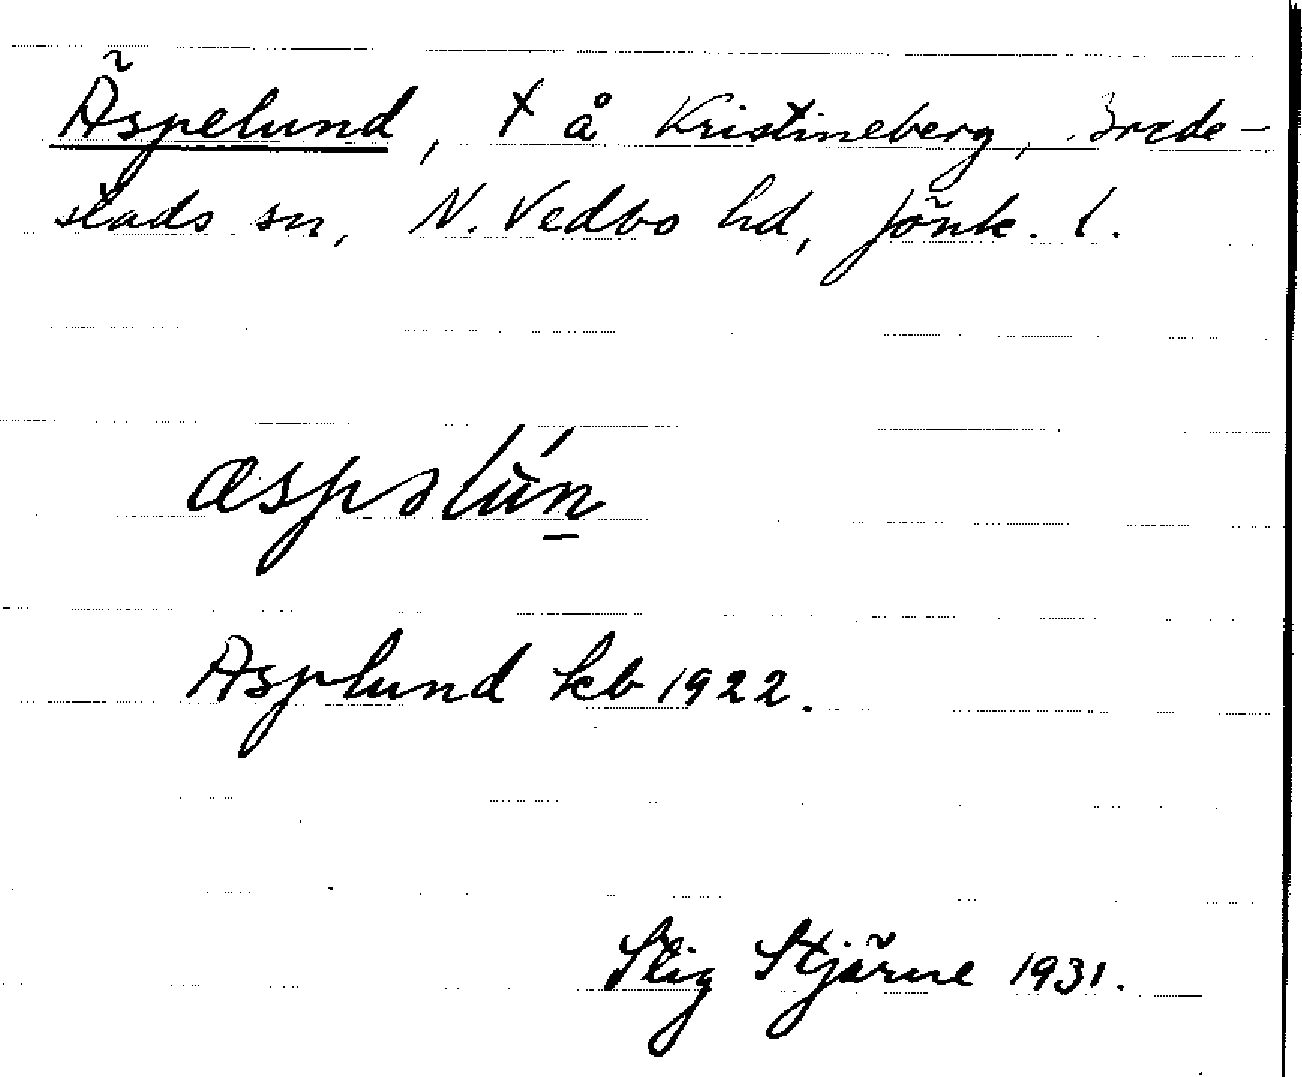 Äspelund, t å Kristineberg, Brede-
stads sn, N. Vedbo hd, Jönk. l.
æspəlún
Asplund kb 1922.
Stig Stjärne 1931.